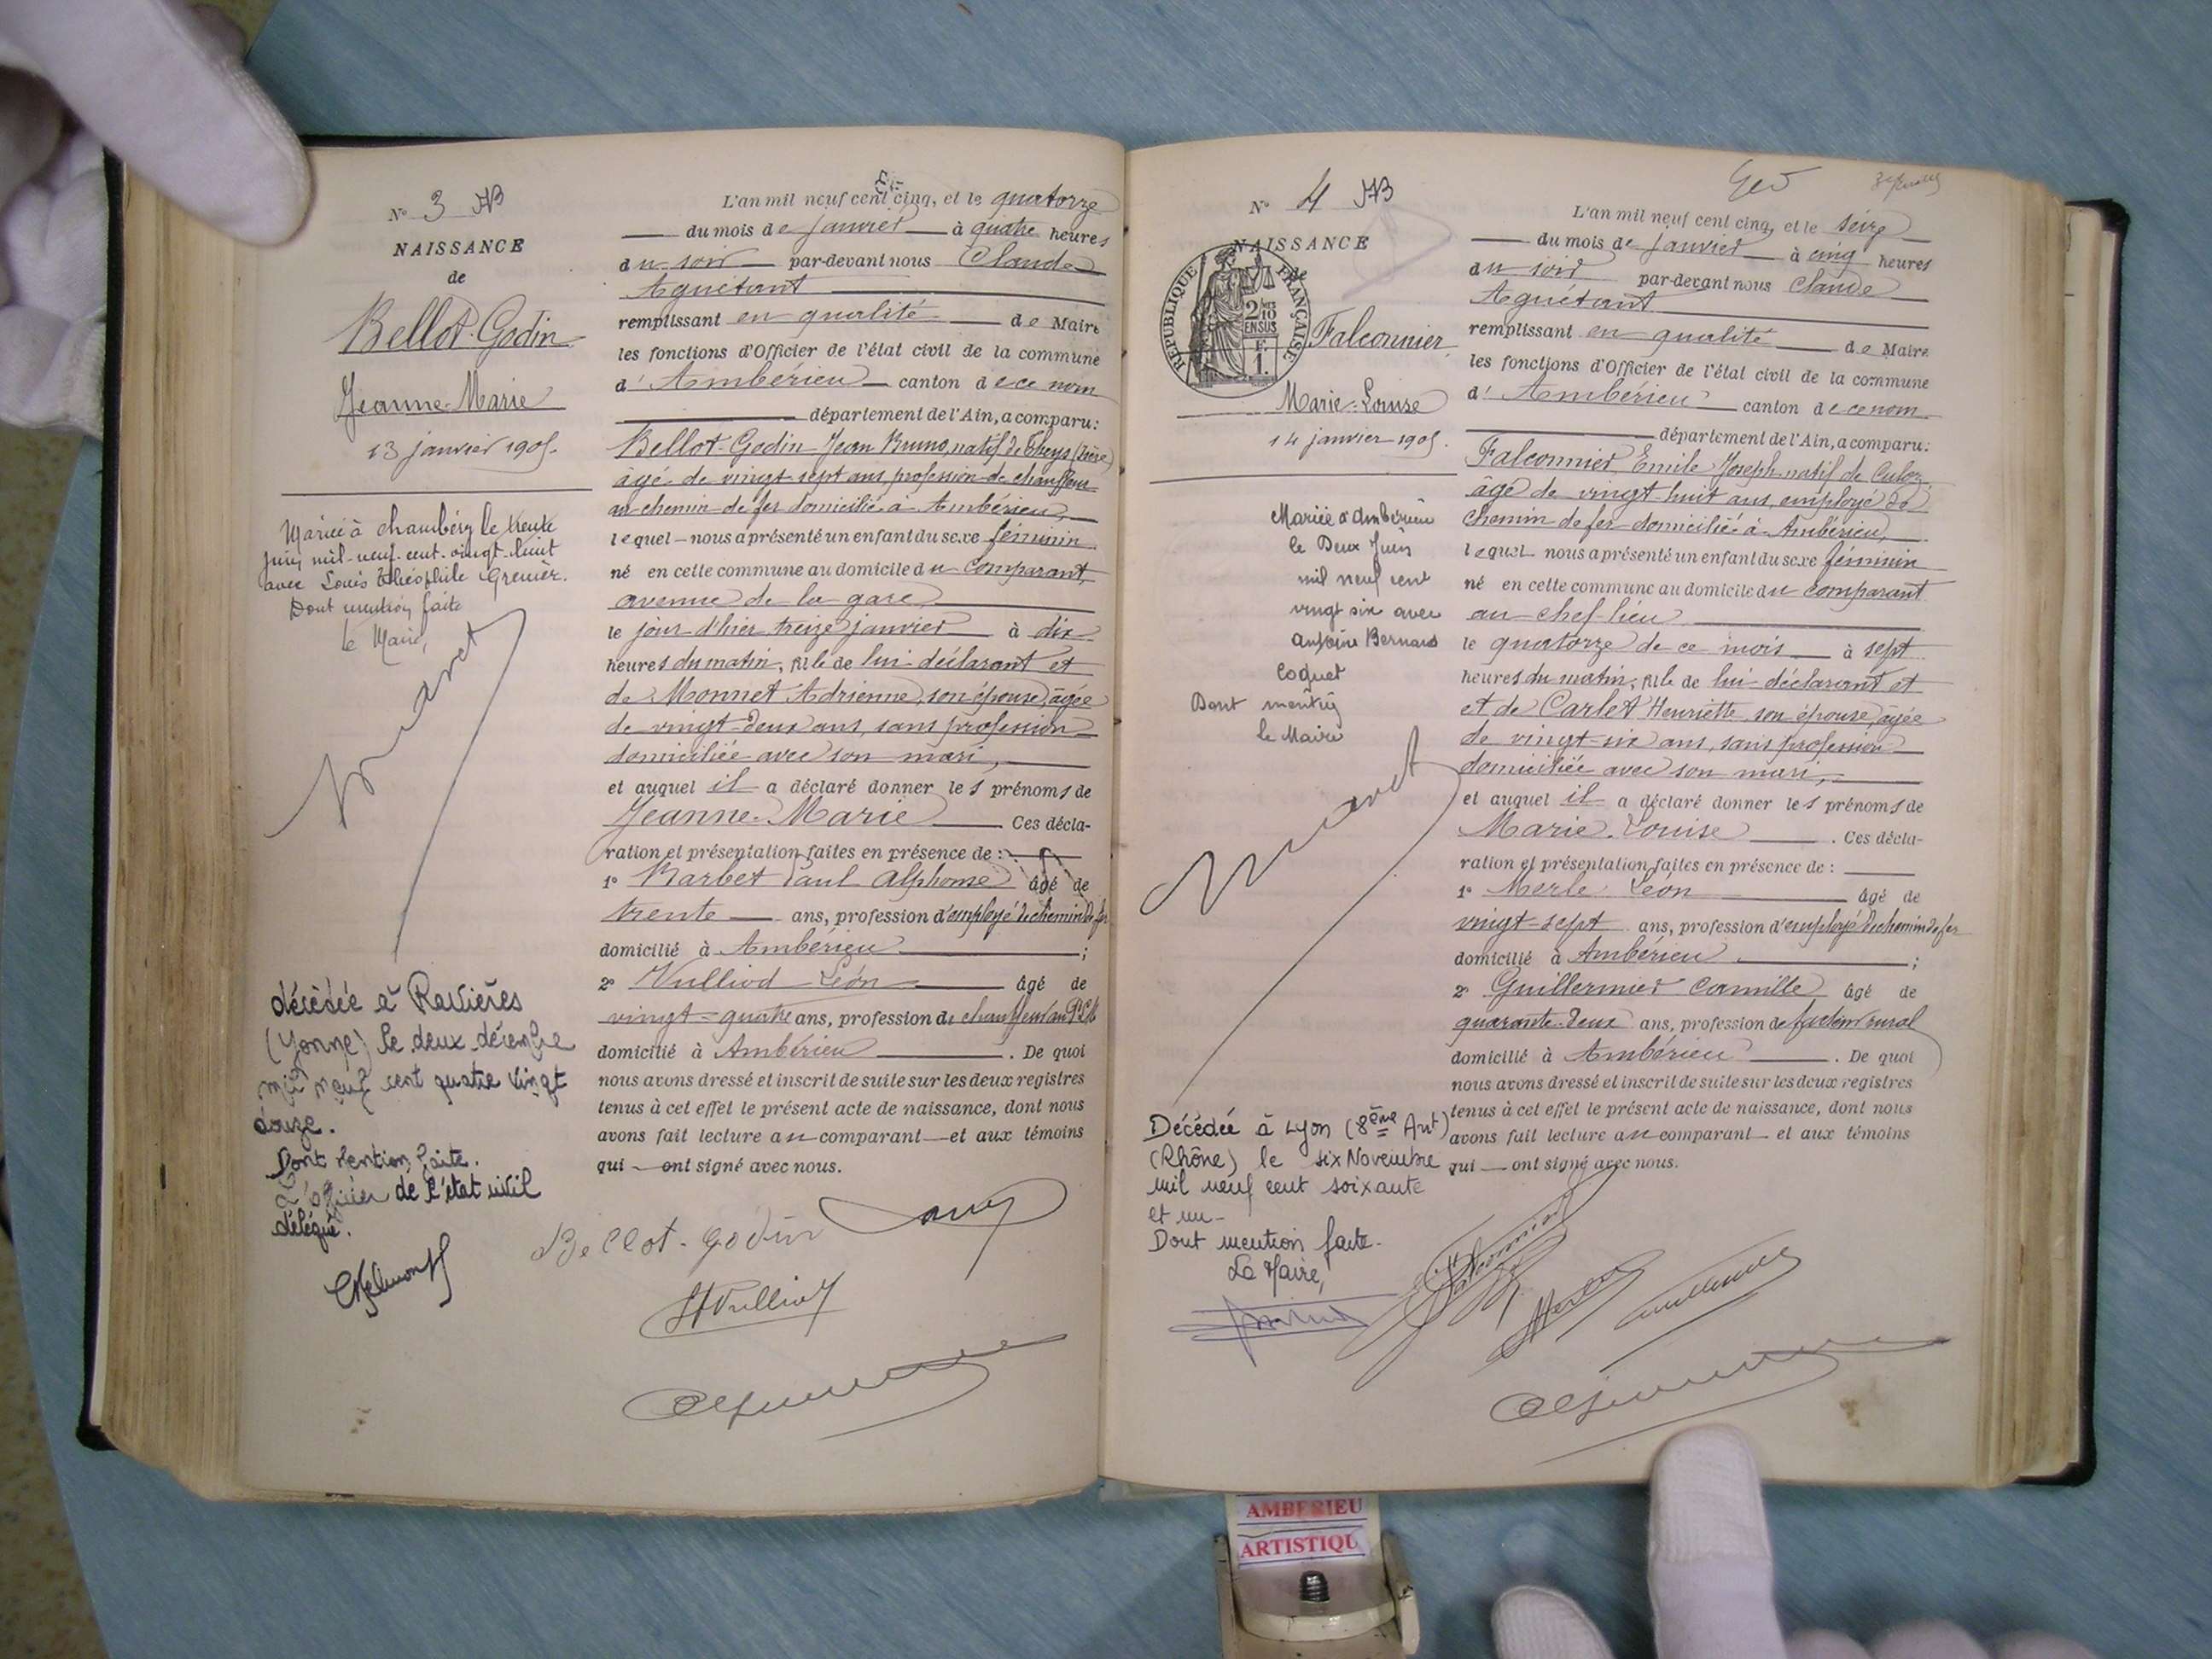 N° 3
NAISSANCE
de
Bellot-Godin
Jeanne-Marie
13 janvier 1905.
Mariée à Chambéry le trente
juin mil-neuf-cent-vingt-huit
avec Louis Théophile Grenier.
Dont mention faite
le Maire,
décédée à Ravières
(Yonne) le deux décembre
mil neuf cent quatre vingt
douze.
Dont Mention faite.
L'officier de l'état civil
délégué.
L'an mil neuf cent cinq, et le quatorze
du mois de janvier à quatre heures
du soir par-devant nous Claude
Aguétant
remplissant en qualité de Maire
les fonctions d'Officier de l'état civil de la commune
d'Ambérieu canton de ce nom
département de l'Ain, a comparu:
Bellot-Godin Jean Bruno, natif de Theys (Isère)
âgé de vingt-sept ans, profession de chauffeur
au chemin de fer domicilié à Ambérieu,
lequel nous a présenté un enfant du sexe féminin
né en cette commune au domicile du comparant,
avenue de la gare,
le jour d'hier treize janvier à dix
heures du matin, fille de lui déclarant et
de Monnet Adrienne, son épouse, âgée
de vingt-deux ans, sans profession
domiciliée avec son mari,
et auquel il a déclaré donner les prénoms de
Jeanne-Marie Ces décla-
ration et présentation faites en présence de :
1° Barbet Paul Alphonse âgé de
trente ans, profession d'employé de chemin de fer
domicilié à Ambérieu ;
2° Vulliod Léon âgé de
vingt-quatre ans, profession de chauffeur au P.L.M.
domicilié à Ambérieu . De quoi
nous avons dressé et inscrit de suite sur les deux registres
tenus à cet effet le présent acte de naissance, dont nous
avons fait lecture au comparant et aux témoins
qui ont signé avec nous.
Bellot-Godin
Vulliod
N° 4
NAISSANCE
de
RÉPUBLIQUE FRANÇAISE
2/10
EN SUS
F.
1.
Falconnier
Marie-Louise
14 janvier 1905.
Mariée à Ambérieu
le Deux Juin
mil neuf cent
vingt six avec
Antoine Bernard
Coquet
Dont mention
le Maire
Décédée à Lyon (8ème Arrt)
(Rhône) le six Novembre
mil neuf cent soixante
et un-
Dont mention faite.
Le Maire,
L'an mil neuf cent cinq, et le seize
du mois de janvier à cinq heures
du soir par-devant nous Claude
Aguétant
remplissant en qualité de Maire
les fonctions d'Officier de l'état civil de la commune
d'Ambérieu canton de ce nom
département de l'Ain, a comparu:
Falconnier Emile Joseph natif de Culoz,
âgé de vingt-huit ans, employé de
chemin de fer domicilié à Ambérieu,
lequel nous a présenté un enfant du sexe féminin
né en cette commune au domicile du comparant
au chef-lieu
le quatorze de ce mois à sept
heures du matin, fille de lui déclarant et
et de Carlet Henriette son épouse, âgée
de vingt-six ans, sans profession
domiciliée avec son mari,
et auquel il a déclaré donner les prénoms de
Marie-Louise . Ces décla-
ration et présentation faites en présence de :
1° Merle Léon âgé de
vingt-sept ans, profession d'employé de chemin de fer
domicilié à Ambérieu ;
2° Guillermier Camille âgé de
quarante-deux ans, profession de facteur rural
domicilié à Ambérieu . De quoi
nous avons dressé et inscrit de suite sur les deux registres
tenus à cet effet le présent acte de naissance, dont nous
avons fait lecture au comparant et aux témoins
qui ont signé avec nous.
AMBERIEU
ARTISTIQU